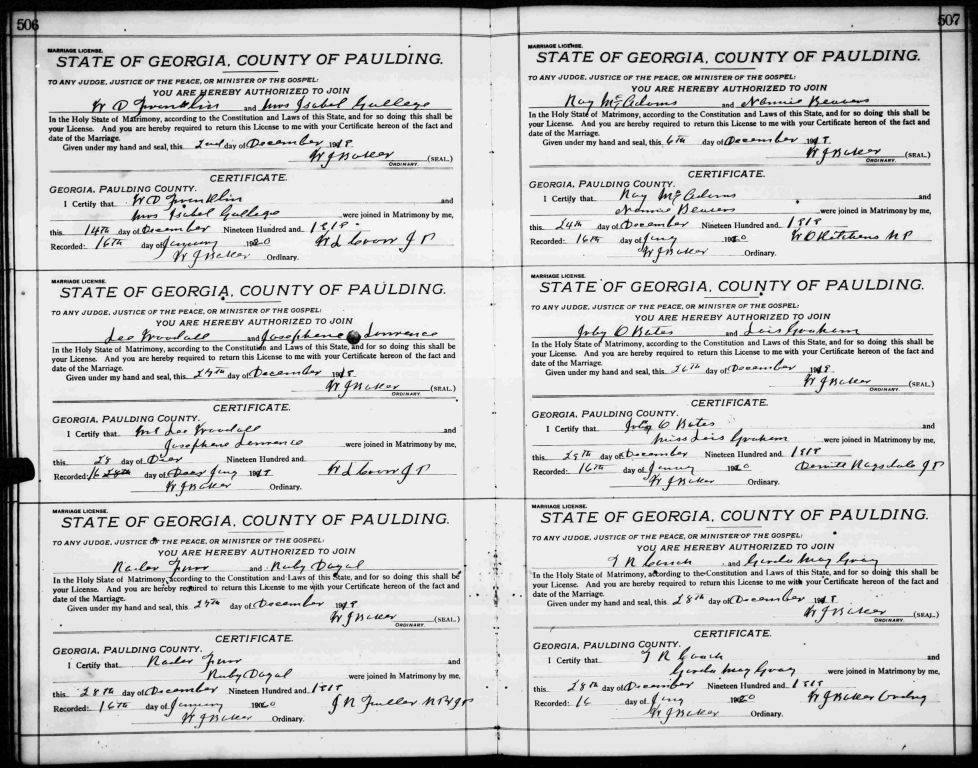 506
MARRIAGE LICENSE.
STATE OF GEORGIA, COUNTY OF PAULDING.
TO ANY JUDGE, JUSTICE OF THE PEACE, OR MINISTER OF THE GOSPEL:
YOU ARE HEREBY AUTHORIZED TO JOIN
W D Franklin and Mrs Isabel Gallege
In the Holy State of Matrimony, according to the Constitution and Laws of this State, and for so doing this shall be
your License. And you are hereby required to return this License to me with your Certificate hereon of the fact and
date of the Marriage.
Given under my hand and seal, this 2nd day of December 191
W J Baker (SEAL.)
ORDINARY.
CERTIFICATE.
GEORGIA, PAULDING COUNTY.
I Certify that W D Franklin and
Mrs Isabel Gallege were joined in Matrimony by me,
this 14th day of December Nineteen Hundred and
Recorded: 16th day of January 1920 J P
W J Baker Ordinary.
MARRIAGE LICENSE.
STATE OF GEORGIA, COUNTY OF PAULDING.
TO ANY JUDGE, JUSTICE OF THE PEACE, OR MINISTER OF THE GOSPEL:
YOU ARE HEREBY AUTHORIZED TO JOIN
Lee Woodall and Josephene Lawrence
In the Holy State of Matrimony, according to the Constitution and Laws of this State, and for so doing this shall be
your License. And you are hereby required to return this License to me with your Certificate hereon of the fact and
date of the Marriage.
Given under my hand and seal, this 27th day of December 191
W J Baker (SEAL.)
ORDINARY.
CERTIFICATE.
GEORGIA, PAULDING COUNTY.
I Certify that Mr Lee Woodall and
Josephene Lawrence were joined in Matrimony by me,
this 28 day of Nineteen Hundred and
Recorded: 16 day of Jany J P
W J Baker Ordinary.
MARRIAGE LICENSE.
STATE OF GEORGIA, COUNTY OF PAULDING.
TO ANY JUDGE, JUSTICE OF THE PEACE, OR MINISTER OF THE GOSPEL:
YOU ARE HEREBY AUTHORIZED TO JOIN
Nailer Furr and Ruby Dogal
In the Holy State of Matrimony, according to the Constitution and Laws of this State, and for so doing this shall be
your License. And you are hereby required to return this License to me with your Certificate hereon of the fact and
date of the Marriage.
Given under my hand and seal, this 27th day of December 191
W J Baker (SEAL.)
ORDINARY.
CERTIFICATE.
GEORGIA, PAULDING COUNTY.
I Certify that Nailer Furr and
Ruby Dogal were joined in Matrimony by me,
this 28th day of December Nineteen Hundred and
Recorded: 16th day of January 1920 J N Fuller
W J Baker Ordinary.
507
MARRIAGE LICENSE.
STATE OF GEORGIA, COUNTY OF PAULDING.
TO ANY JUDGE, JUSTICE OF THE PEACE, OR MINISTER OF THE GOSPEL:
YOU ARE HEREBY AUTHORIZED TO JOIN
Ray McAdams and Nannie Beavers
In the Holy State of Matrimony, according to the Constitution and Laws of this State, and for so doing this shall be
your License. And you are hereby required to return this License to me with your Certificate hereon of the fact and
date of the Marriage.
Given under my hand and seal, this 6th day of December 191
W J Baker (SEAL.)
ORDINARY.
CERTIFICATE.
GEORGIA, PAULDING COUNTY.
I Certify that Ray McAdams and
Nannie Beavers were joined in Matrimony by me,
this 24th day of December Nineteen Hundred and
Recorded: 16th day of Jany 1920 W O Kitchens N P
W J Baker Ordinary.
MARRIAGE LICENSE.
STATE OF GEORGIA, COUNTY OF PAULDING.
TO ANY JUDGE, JUSTICE OF THE PEACE, OR MINISTER OF THE GOSPEL:
YOU ARE HEREBY AUTHORIZED TO JOIN
Irby O Bates and Lois Graham
In the Holy State of Matrimony, according to the Constitution and Laws of this State, and for so doing this shall be
your License. And you are hereby required to return this License to me with your Certificate hereon of the fact and
date of the Marriage.
Given under my hand and seal, this 26th day of December 191
W J Baker (SEAL.)
ORDINARY.
CERTIFICATE.
GEORGIA, PAULDING COUNTY.
I Certify that Irby O Bates and
Miss Lois Graham were joined in Matrimony by me,
this 28th day of December Nineteen Hundred and
Recorded: 16th day of January 1920 Ragsdale J P
W J Baker Ordinary.
MARRIAGE LICENSE.
STATE OF GEORGIA, COUNTY OF PAULDING.
TO ANY JUDGE, JUSTICE OF THE PEACE, OR MINISTER OF THE GOSPEL:
YOU ARE HEREBY AUTHORIZED TO JOIN
T R Couch and Gorda May Gray
In the Holy State of Matrimony, according to the Constitution and Laws of this State, and for so doing this shall be
your License. And you are hereby required to return this License to me with your Certificate hereon of the fact and
date of the Marriage.
Given under my hand and seal, this 28th day of December 191
W J Baker (SEAL.)
ORDINARY.
CERTIFICATE.
GEORGIA, PAULDING COUNTY.
I Certify that T R Couch and
Gorda May Gray were joined in Matrimony by me,
this 28th day of December Nineteen Hundred and
Recorded: 16 day of Jany 1920 W J Baker Ordny
W J Baker Ordinary.